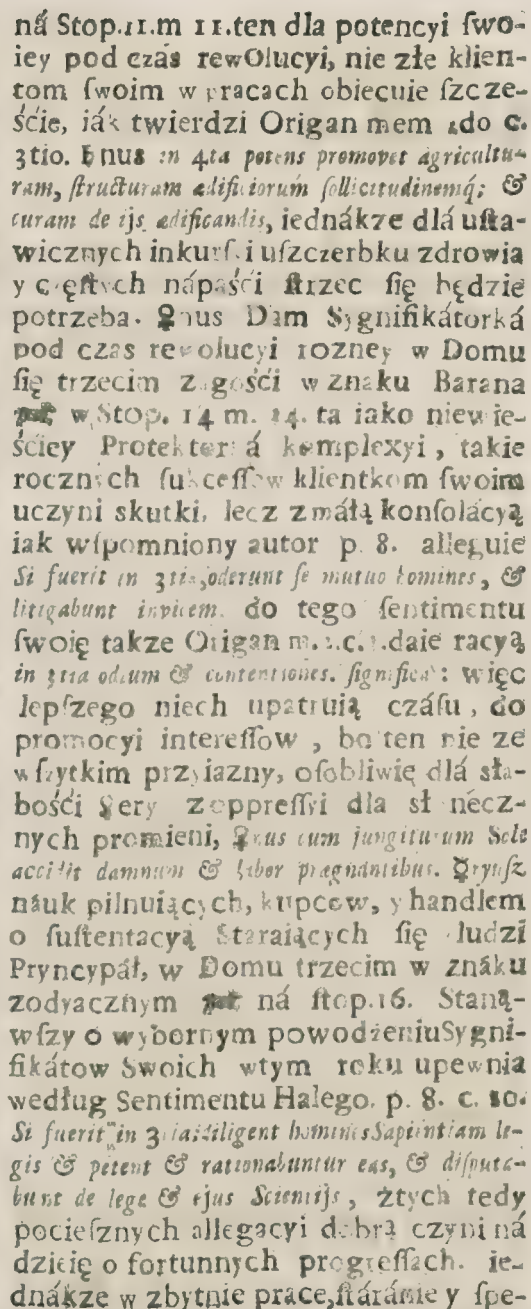 ná Stop.11.m 11.ten dla potencyi ſwo-
iey pod czás rewOlucyi, nie złe klien-
tom ſwoim w pracach obiecuie ſzcze-
ście, iák twierdzi Origan mem do c.
3tio. in 4ta potens promovet agricultu-
ram, ſtructuram ædificiorum ſollicitudinemq́; &
curam de ijs ædificandis, iednákże dlá uſta-
wicznych inkurſ. i uſzczerbku zdrowia
y częſtych nápaści ſtrzec ſię będzie
potrzeba. ♀nus Dam Sygnifikátorká
pod czas rewolucyi rozney w Domu
ſię trzecim zagości w znaku Barana
w Stop. 14 m. 14. ta iako niewie-
ściey Protektorá komplexyi, takie
rocznych ſukceſſow klientkom ſwoim
uczyni skutki, lecz z máłą konſolácyą
iak wſpomniony autor p. 8. alleguie
Si fuerit in 3tia, oderunt ſe mutuo homines, &
litigabunt invicem. do tego ſentimentu
ſwoię takze Origan m. c. daie racyą
in 3tia odium & contentiones. ſignificat: więc
lepſzego niech upatruią czáſu, do
promocyi intereſſow, bo ten nie ze
wſzytkim przyiazny, oſobliwię dlá sła-
bości z oppreſſyi dla słonecz-
nych promieni, ♀nus cum jungitur cum Sole
accidit damnum & labor prægnantibus. ☿ryuſz
náuk pilnuiących, kupcow, y handlem
o ſuſtentacyą Staraiących ſię ludzi
Pryncypáł, w Domu trzecim w znáku
zodyacznym ná ſtop.16. Staną-
wſzy o wybornym powodzeniuSygni-
fikátow Swoich wtym roku upewnia
według Sentimentu Halego. p. 8. c. 10.
Si fuerit in 3tia diligent homines Sapientiam le-
gis & petent & rationabuntur eas, & diſputa-
bunt de lege & ejus Scientijs, z tych tedy
pocieſznych allegacyi dobrą czyni ná
dzieię o fortunnych progreſſach. ie-
dnákże w zbytnie prace, ſtáránie y ſpe-